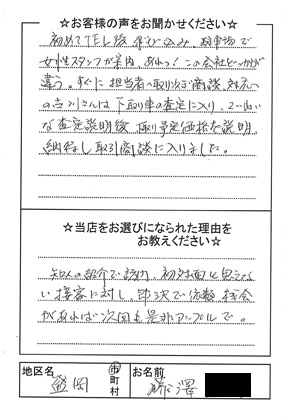 ☆お客様の声をお聞かせください☆
初めてTEL後 飛び込み、駐車場で
女性スタッフが案内、あれっ! この会社どっかが
違う。すぐに担当者へ取り次ぎ商談、対応へ
の さんは下取り車の査定に入り、ていねい
な査定説明後、取り予定価格を説明。
納得し取引商談に入りました。
☆当店をお選びになられた理由を
お教えください☆
知人の紹介で訪問、初対面と思えな
い接客に対し、即決で依頼 機会
があれば次回も是非アップルで。
地区名 盛岡 市町村 お名前 澤